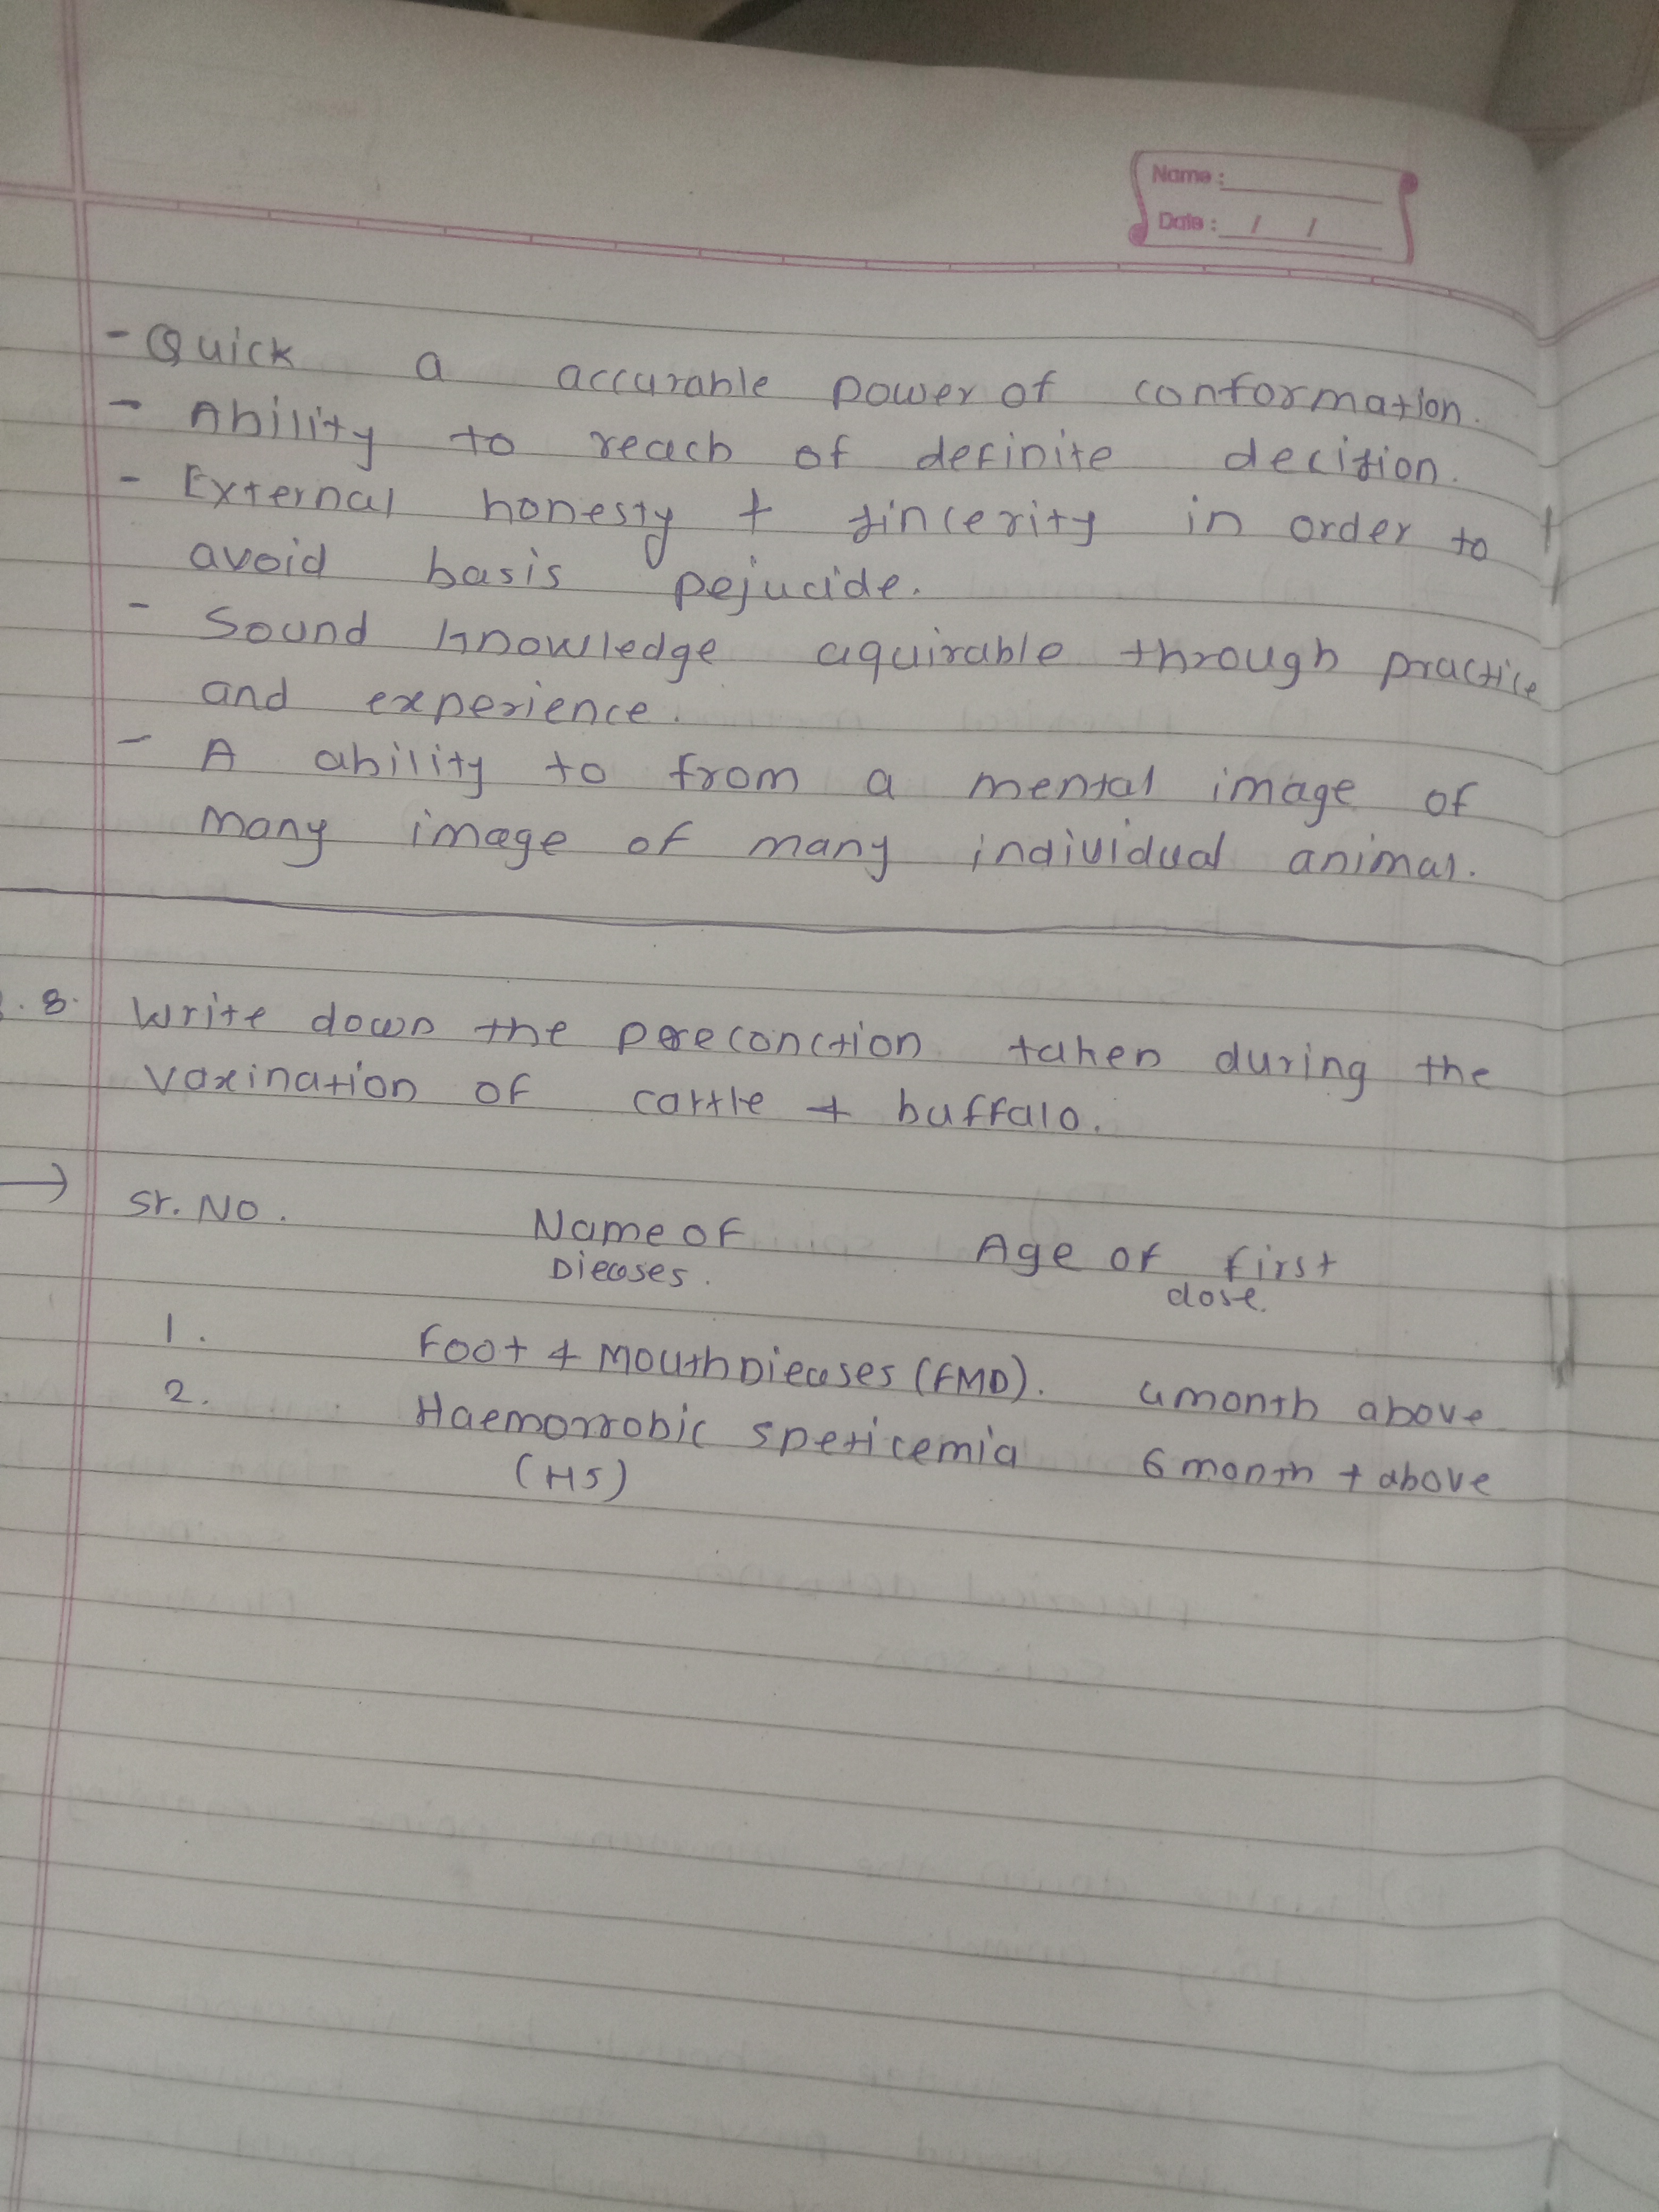 Name :
Date : / /
- Quick a accurable power of conformation.
- Ability to reach of definite decision.
- External honesty + sincerity in order to
avoid basis pejucide.
- Sound knowledge aquirable through practice
and experience.
- A ability to from a mental image of
many image of many individual animal.
.8. Write down the preconction taken during the
vaxination of cattle + buffalo.
→ Sr. No. Name of Age of first
Dieases. dose.
1. Foot + Mouth Dieases (FMD). 4 month above
2. Haemorrobic spericemia 6 month + above
(HS)